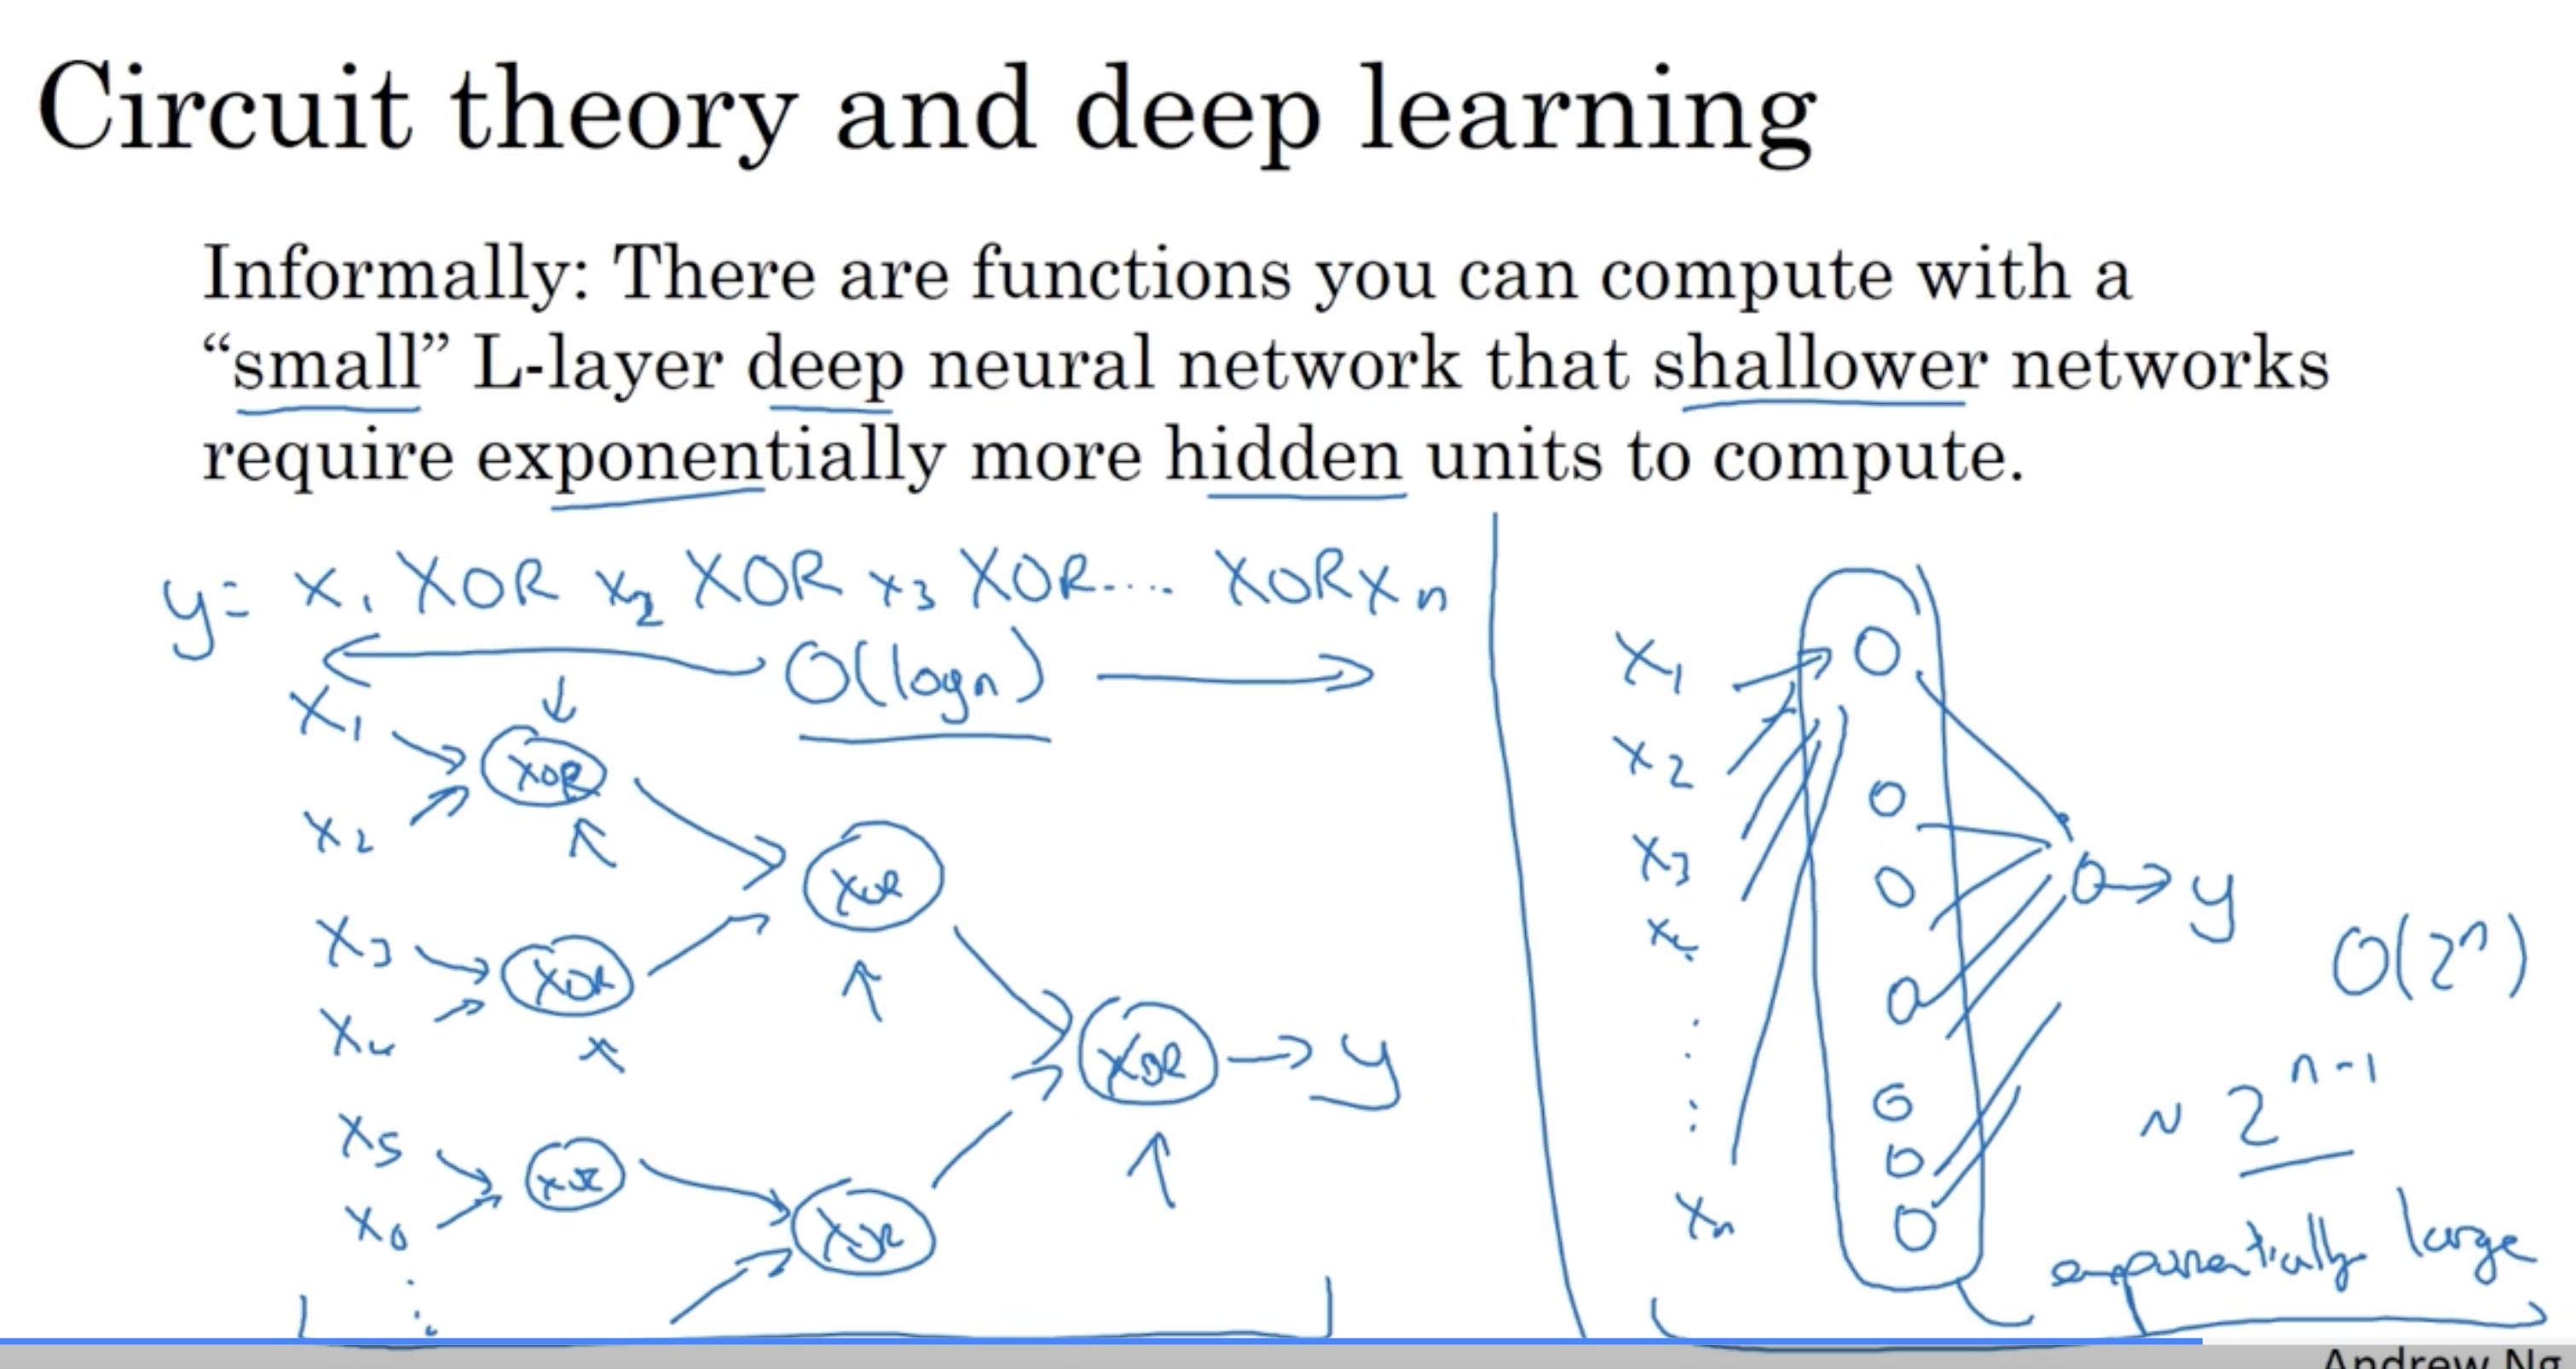 Circuit theory and deep learning
Informally: There are functions you can compute with a
“small” L-layer deep neural network that shallower networks
require exponentially more hidden units to compute.
y = x1 XOR x2 XOR x3 XOR.... XOR xn
O(log n)
x1
XOR
x2
XOR
x3
XOR
x4
XOR → y
x5
XOR
x6
XOR
x1
x2
x3
x4
xn
→ y
O(2^n)
~ 2^n-1
exponentially large
Andrew Ng